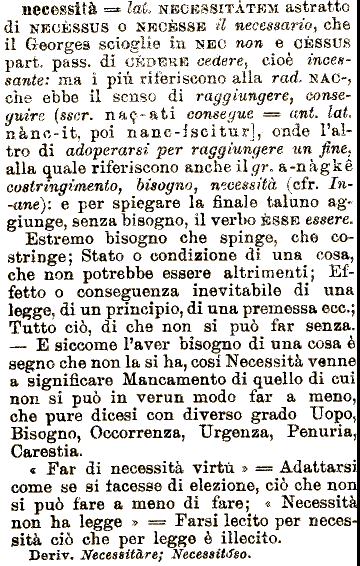 necessità = lat. NECESSITÀTEM astratto
di NECÈSSUS o NECÈSSE il necessario, che
il Georges scioglie in NEC non e CÈSSUS
part. pass. di CÈDERE cedere, cioè inces-
sante: ma i più riferiscono alla rad. NAC-,
che ebbe il senso di raggiungere, conse-
guire (sscr. naç-ati consegue = ant. lat.
nànc-it, poi nanc-ìscitur], onde l'al-
tro di adoperarsi per raggiungere un fine,
alla quale riferiscono anche il gr. a-nàgkê
costringimento, bisogno, necessità (cfr. In-
-ane): e per spiegare la finale taluno ag-
giunge, senza bisogno, il verbo ÈSSE essere.
Estremo bisogno che spinge, che co-
stringe; Stato o condizione di una cosa,
che non potrebbe essere altrimenti; Ef-
fetto o conseguenza inevitabile di una
legge, di un principio, di una premessa ecc.;
Tutto ciò, di che non si può far senza.
— E siccome l'aver bisogno di una cosa è
segno che non la si ha, così Necessità venne
a significare Mancamento di quello di cui
non si può in verun modo far a meno,
che pure dicesi con diverso grado Uopo,
Bisogno, Occorrenza, Urgenza, Penuria,
Carestia.
« Far di necessità virtù » = Adattarsi
come se si facesse di elezione, ciò che non
si può fare a meno di fare; « Necessità
non ha legge » = Farsi lecito per neces-
sità ciò che per legge è illecito.
Deriv. Necessitàre; Necessitóso.